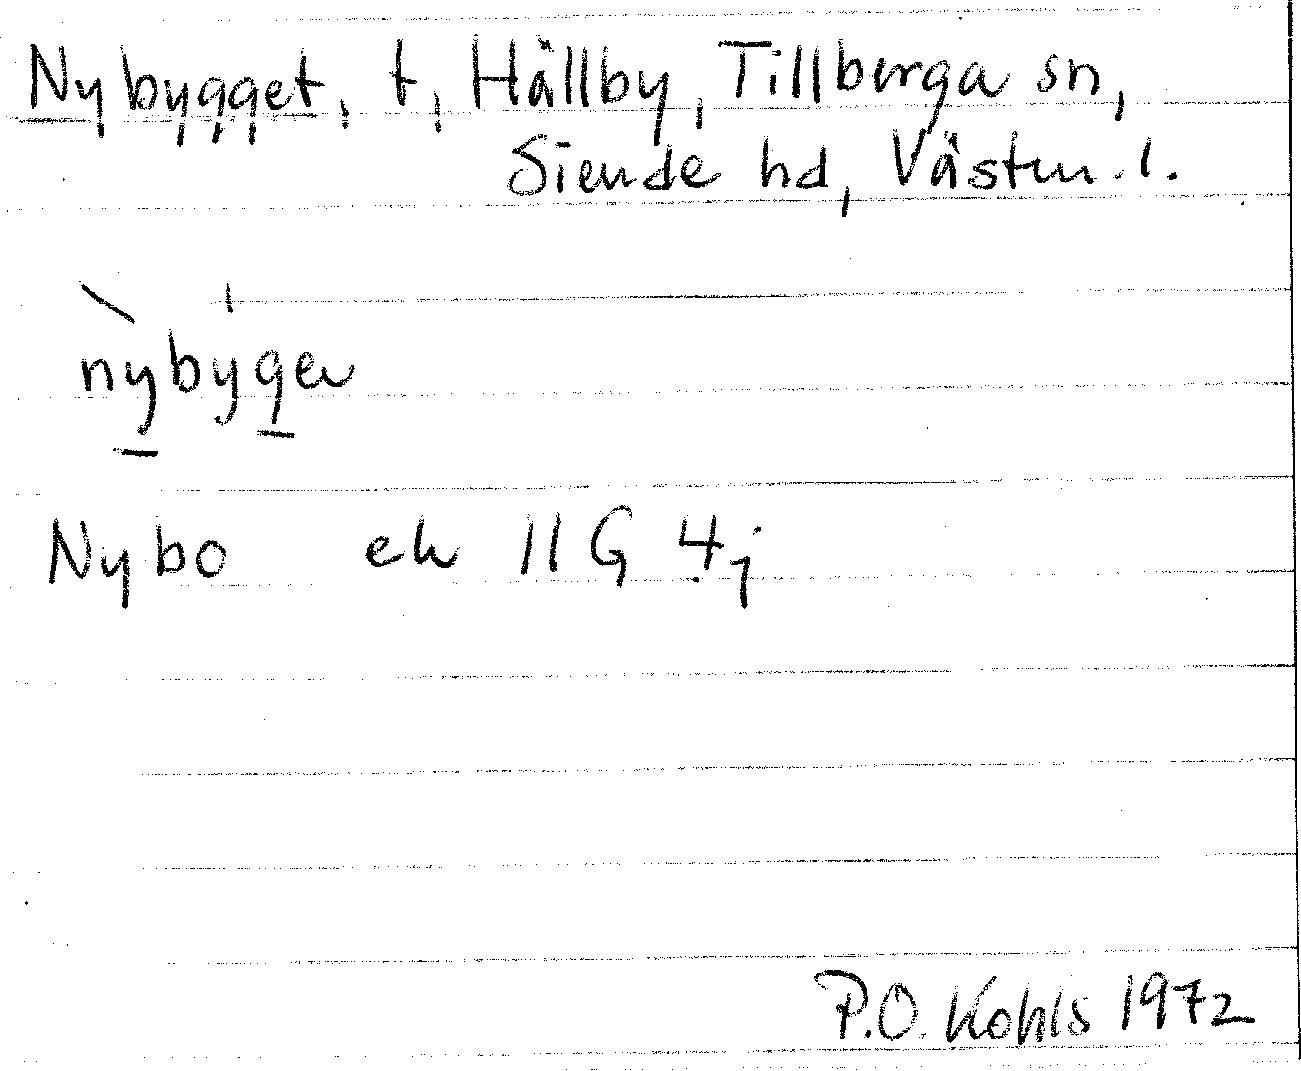 Nybygget, t, Hällby, Tillberga sn,
Siende hd, Västm. l.
nybygeƞ
Nybo ek 11G 4j
P.O. Kohls 1972